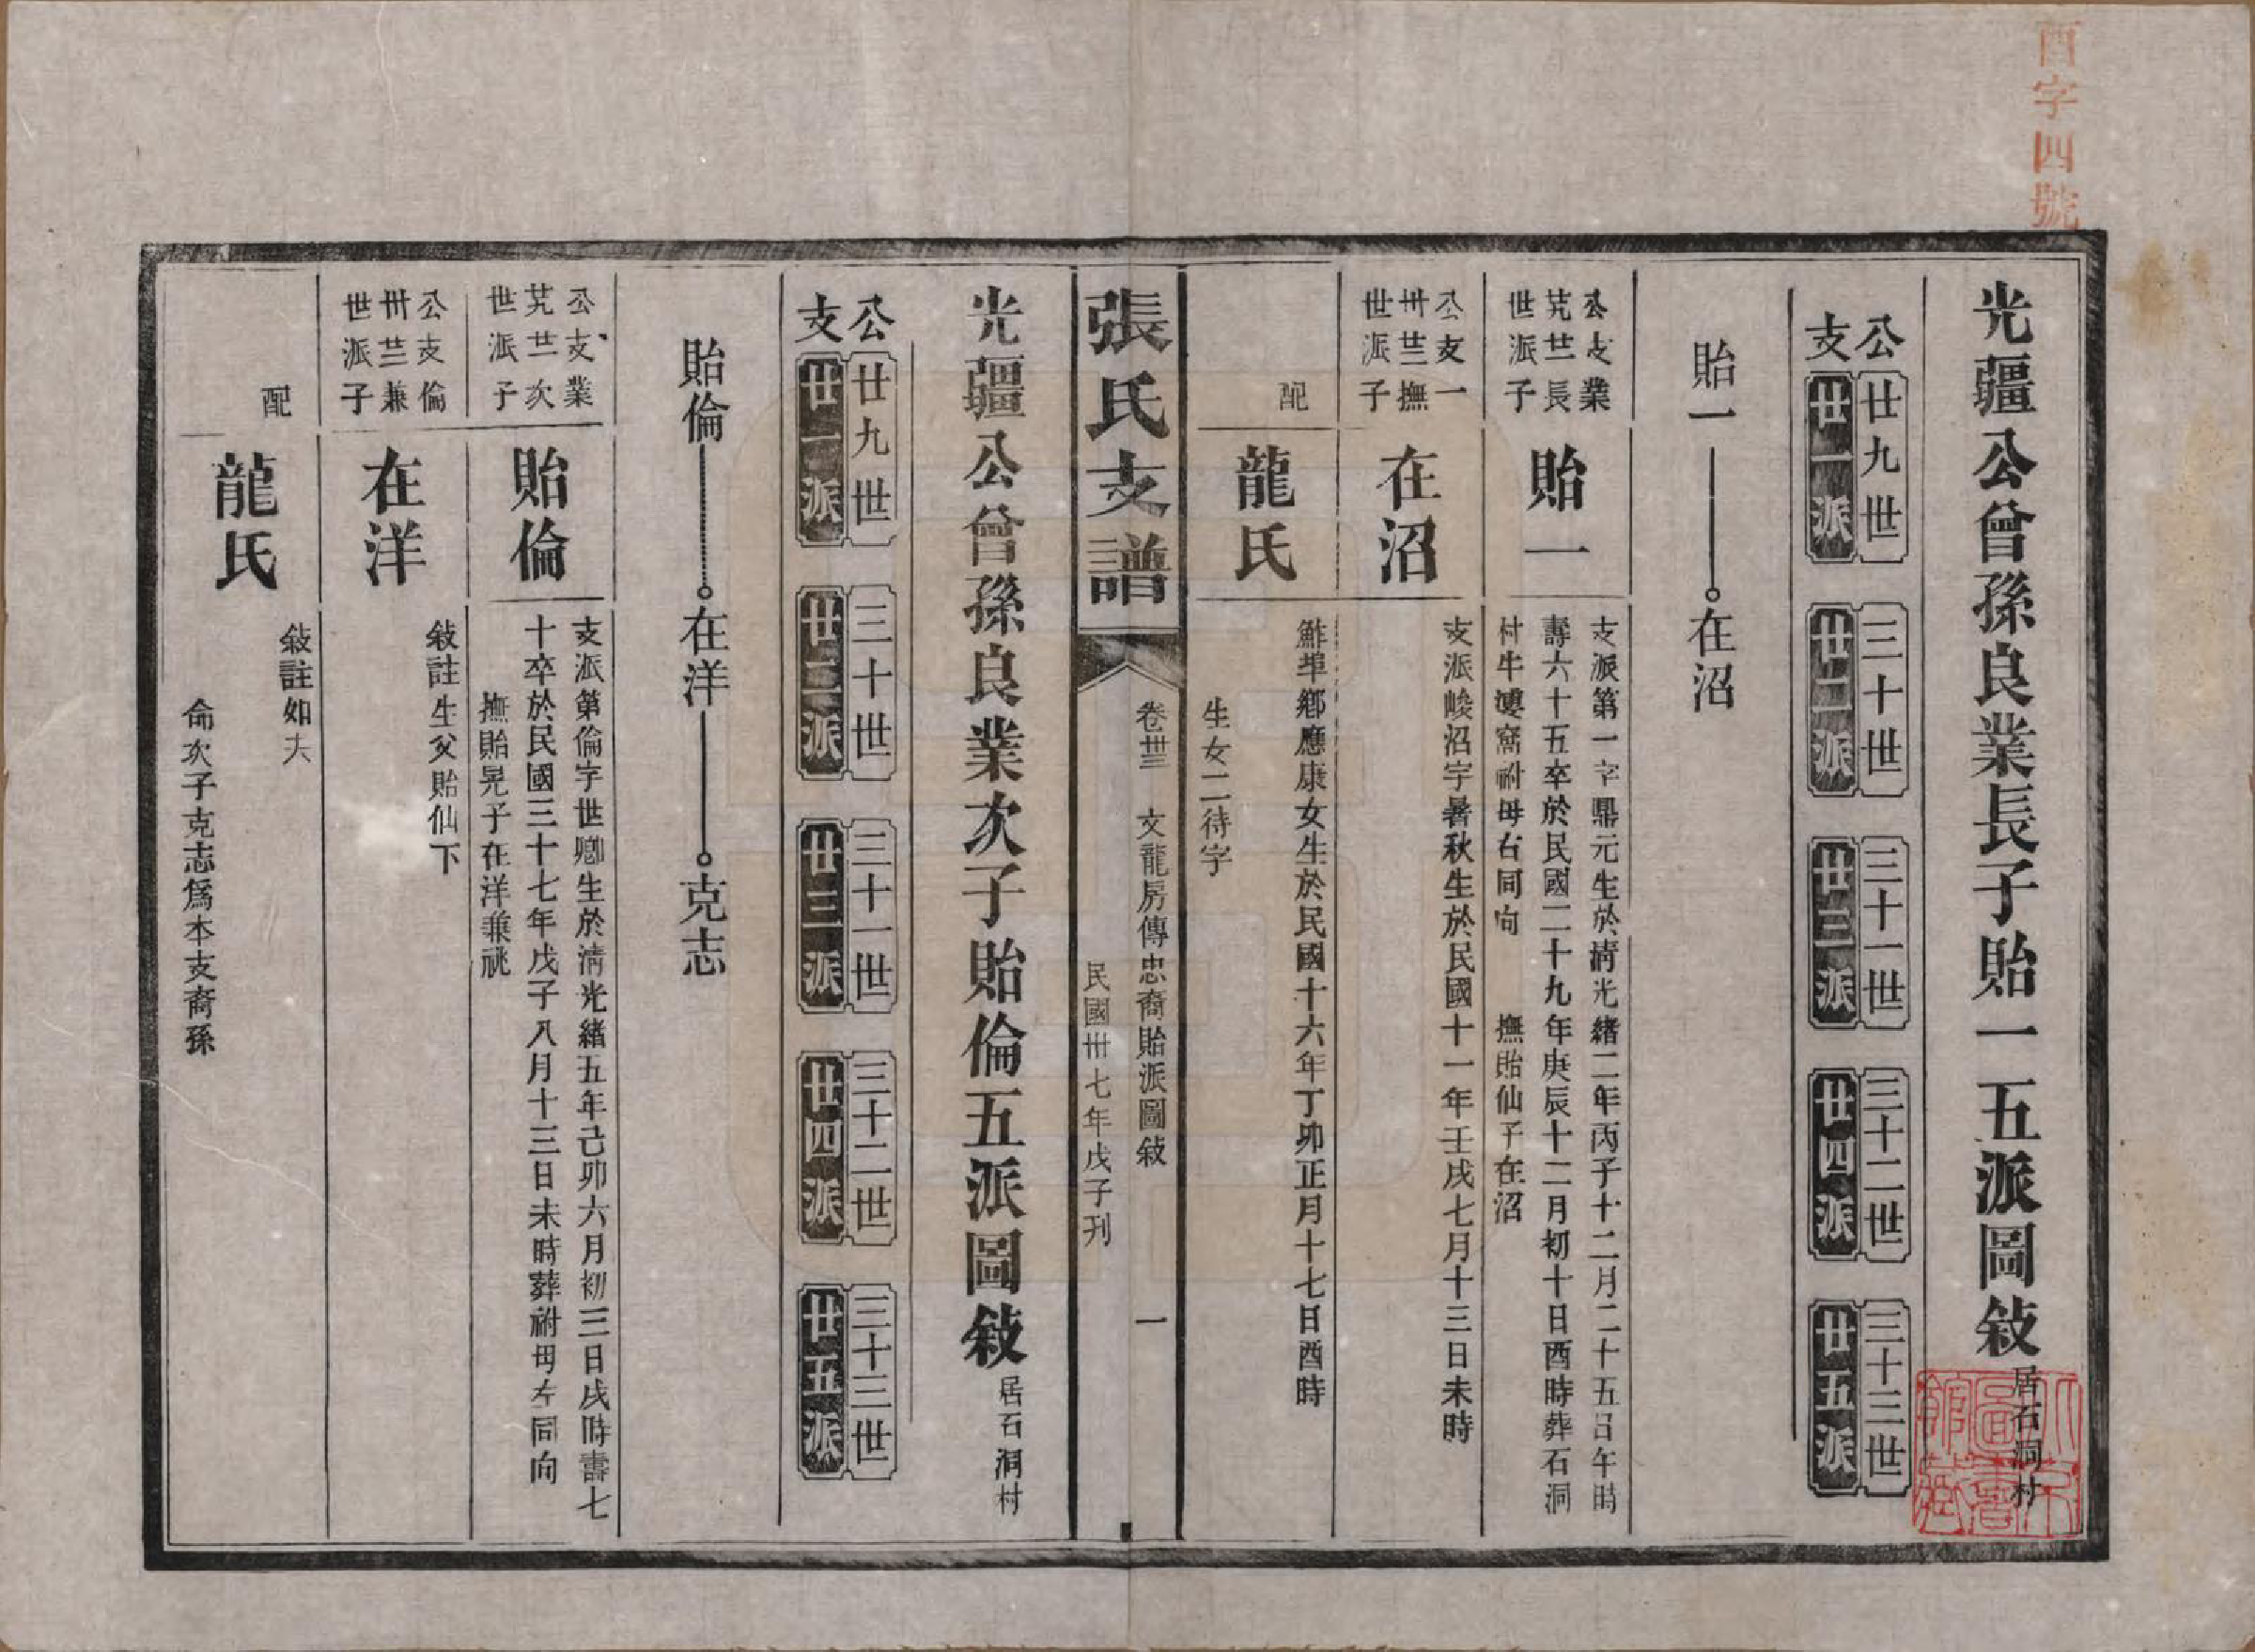 酉字四號
光疆公曾孫良業長子貽一五派圖敍
居石洞村
公支
廿九世 廿一派
三十世 廿二派
三十一世 廿三派
三十二世 廿四派
三十三世 廿五派
貽一 在沼
公支業
艽廿長
世派子
貽一
支派第一字鼎元生於清光緒二年丙子十二月二十五日午時
壽六十五卒於民國二十九年庚辰十二月初十日酉時葬石洞
村牛塿窩祔母右同向 撫貽仙子在沼
公支一
卅廿撫
世派子
在沼
支派峻沼字暑秋生於民國十一年壬戌七月十三日未時
配
龍氏
鮓埠鄉應康女生於民國十六年丁卯正月十七日酉時
生女二待字
張氏支譜
卷卅三 文龍房傳忠裔貽派圖敍 一
民國卅七年戊子刊
光疆公曾孫良業次子貽倫五派圖敍
居石洞村
公支
廿九世 廿一派
三十世 廿二派
三十一世 廿三派
三十二世 廿四派
三十三世 廿五派
貽倫 在洋 克志
公支業
艽廿次
世派子
貽倫
支派第倫字世卿生於清光緒五年己卯六月初三日戌時壽七
十卒於民國三十七年戊子八月十三日未時葬祔母左同向
撫貽晃子在洋兼祧
公支倫
卅廿兼
世派子
在洋
敍註生父貽仙下
配
龍氏
敍註如夫
侖次子克志爲本支裔孫